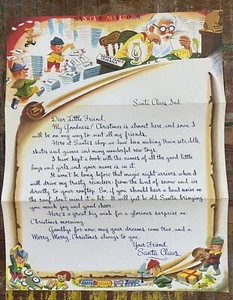 Santa Claus, Ind.
Dear Little Friend,
My Goodness! Christmas is almost here, and soon I
will be on my way to visit all my friends.
Here at Santa's shop we have been making train sets, dolls,
skates, and games and many wonderful new toys.
I have kept a book with the names of all the good little
boys and girls and your name is in it.
It won't be long before that magic night arrives when I
will drive my trusty reindeer from the land of snow and ice
directly to your rooftop. So, if you should hear a loud noise on
the roof, don't mind it a bit. It will just be old Santa bringing
you much joy and good cheer.
Here's a great big wish for a glorious surprise on
Christmas morning.
Goodbye for now, may your dreams come true and a
Merry, Merry Christmas always to you.
Your Friend,
Santa Claus.